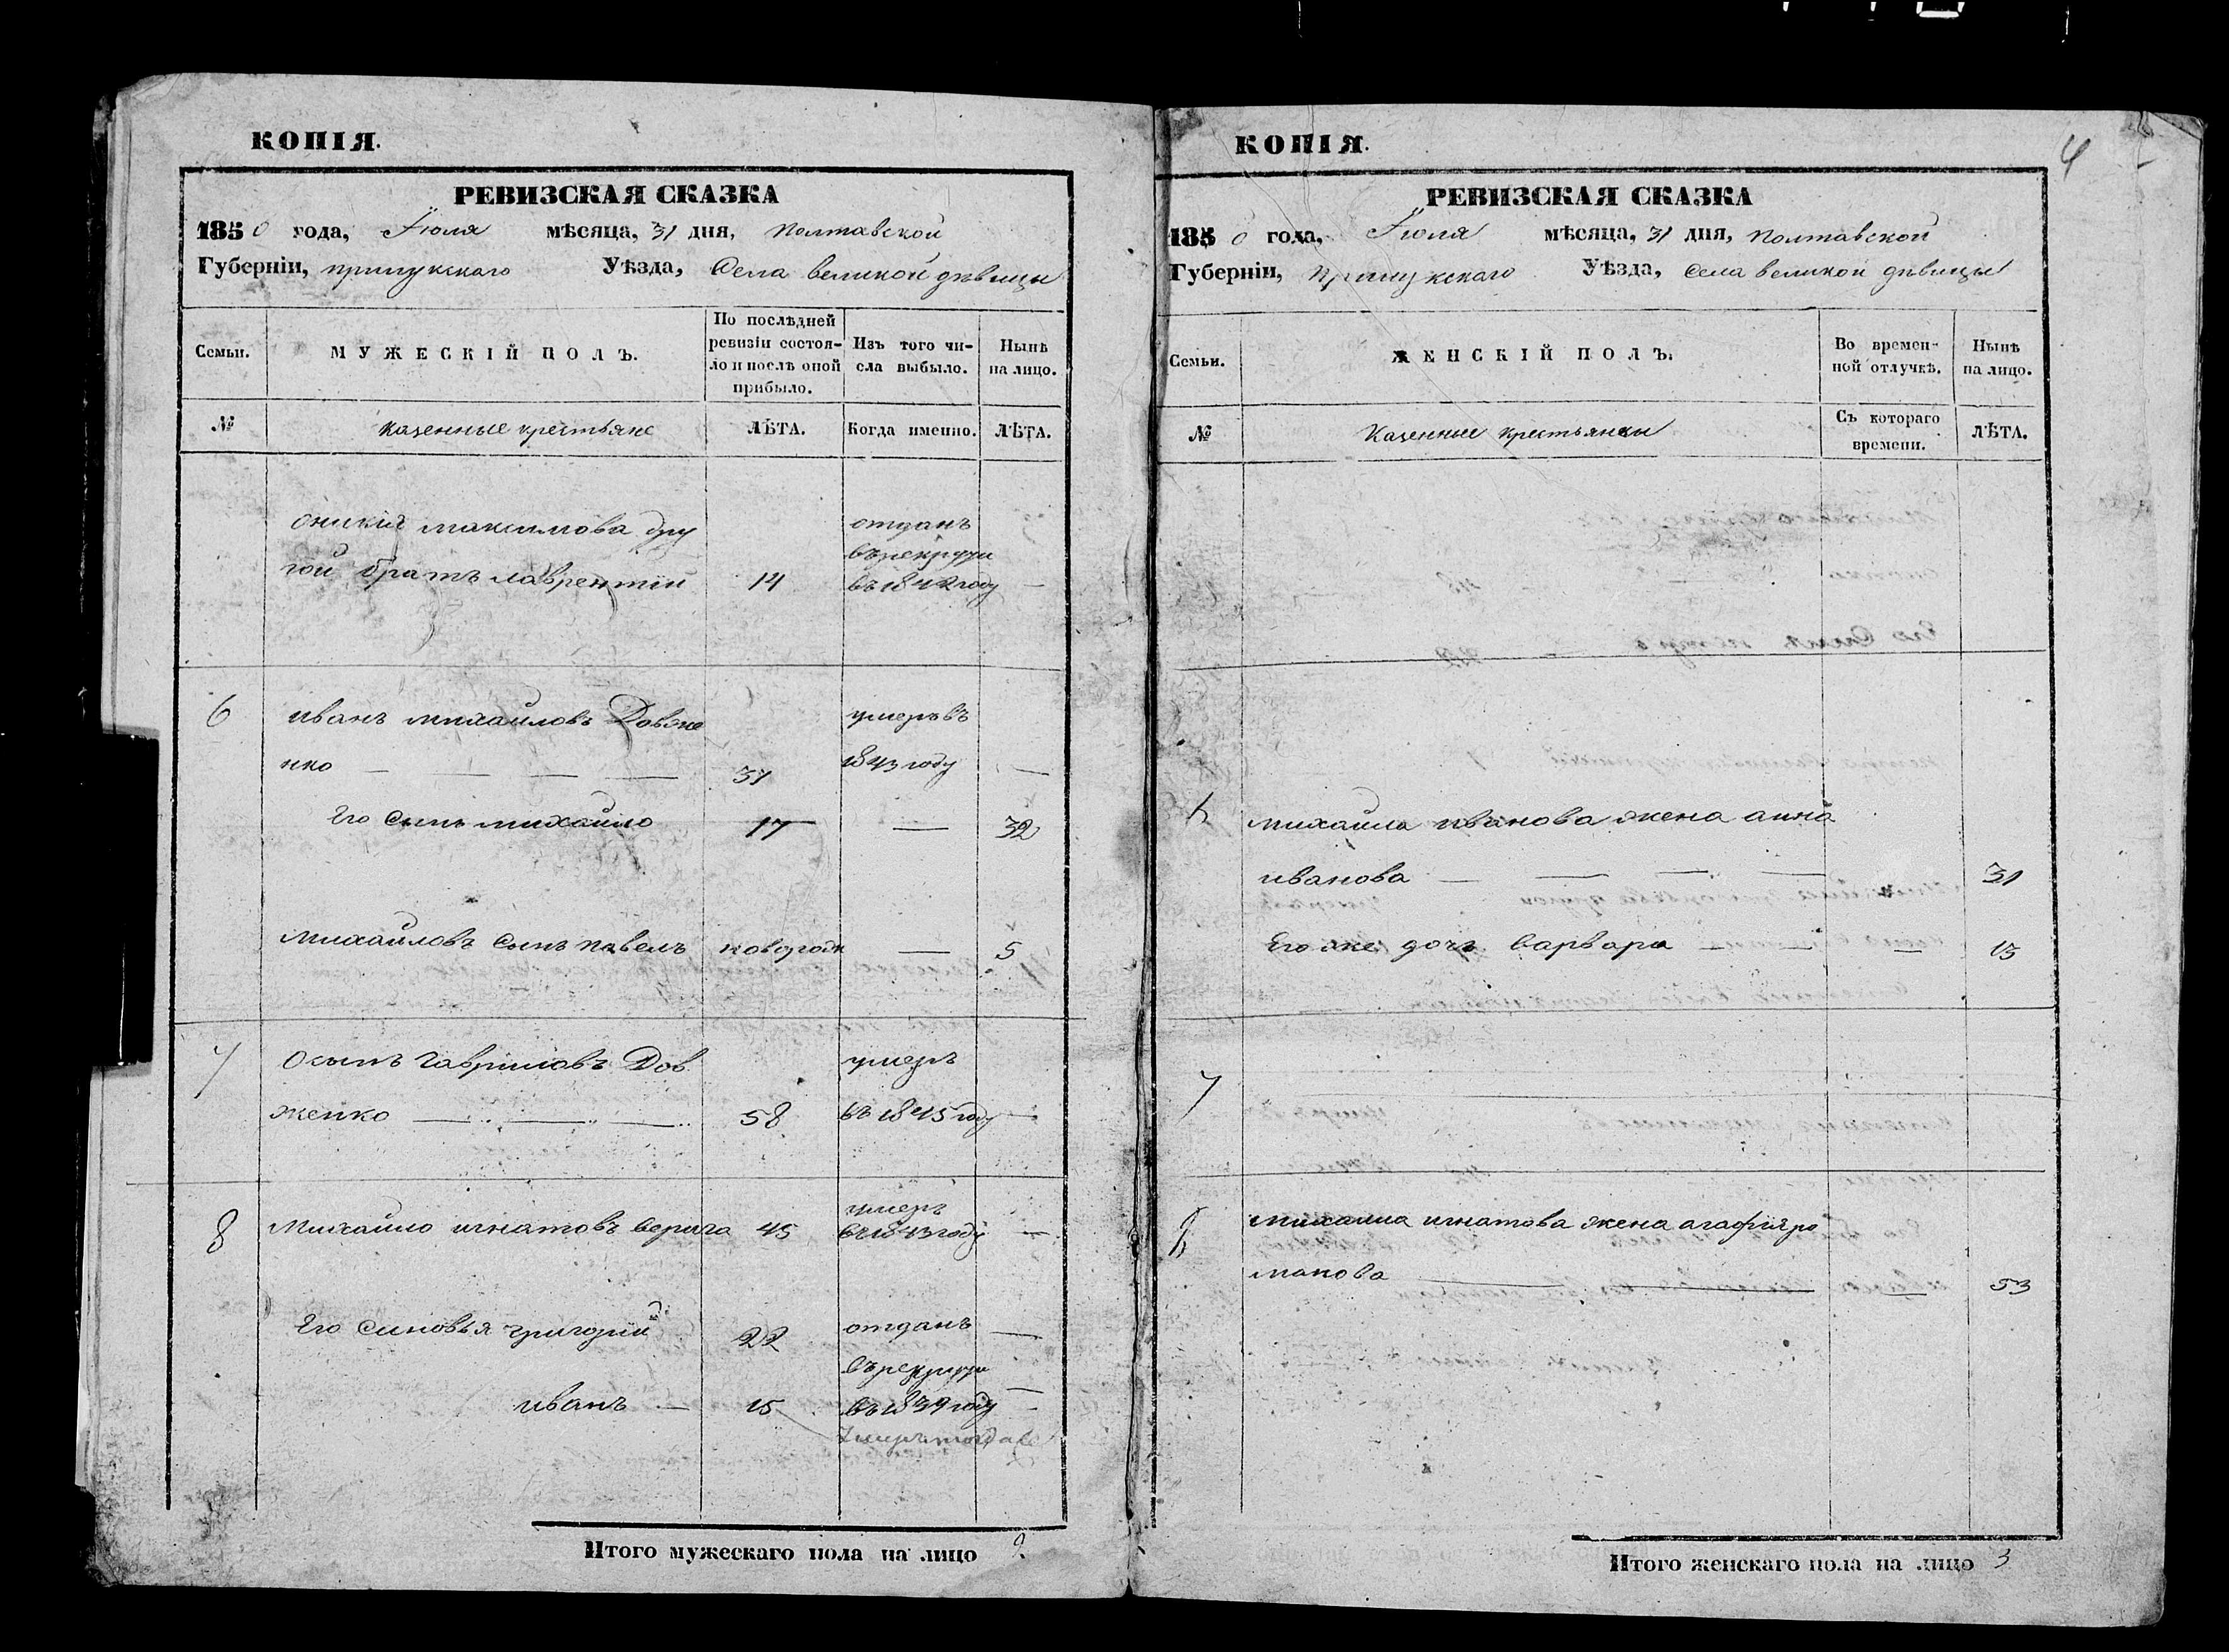 КОПІЯ.
РЕВИЗСКАЯ СКАЗКА
1850 года, Іюля мѣсяца, 31 дня, Полтавской
Губерніи, прилукскаго Уѣзда, Села великой дѣвицы
Семьи.
МУЖЕСКІЙ ПОЛЪ.
По послѣдней
ревизіи состоя-
ло и послѣ оной
прибыло.
Изъ того чи-
сла выбыло.
Нынѣ
на лицо.
№
Казенные крестьяне
ЛѢТА.
Когда именно.
ЛѢТА.
оникія максимова дру отданъ
въ рекруты
гой братъ лаврентій 14 въ 1842 году —
6 иванъ михайловъ Довже умеръ въ
нко — — — — 31 1843 году —
Его сынъ михайло 17 — 32
михайловъ сынъ павелъ новорож — 5
7 осипъ гавриловъ Дов умеръ
женко — — — 58 въ 1845 году —
умеръ
8 Михайло игнатовъ верига 45 въ 1843 году —
Его синовья григорий 22 отданъ —
въ рекруты —
иванъ — 15 въ 1839 году —
Итого мужескаго пола на лицо 2.
КОПІЯ.
4
РЕВИЗСКАЯ СКАЗКА
1850 года, Іюля мѣсяца, 31 дня, полтавской
Губерніи, Прилукскаго Уѣзда, Села великой дѣвицы
Семьи.
ЖЕНСКІЙ ПОЛЪ.
Во времен-
ной отлучкѣ.
Нынѣ
на лицо.
№
Казенные крестьянки
Съ котораго
времени.
ЛѢТА.
6 михайла иванова жена анна
иванова — — — — 31
Его же дочь варвара — — — 13
7
8 михайла игнатова жена агафия ро
манова — 53
Итого женскаго пола на лицо 3